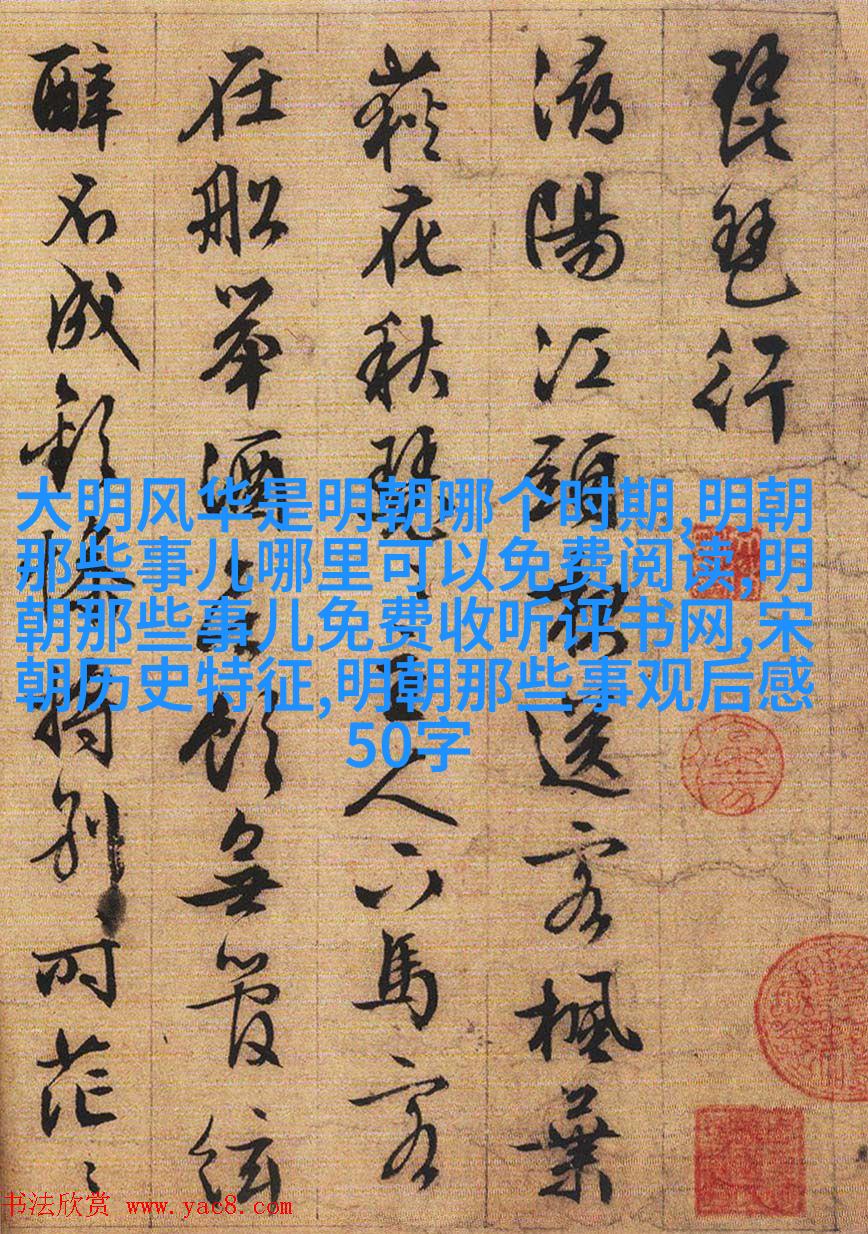 琵琶行
潯陽江頭夜送客楓葉
荻花秋瑟〻主人下馬客
在船舉酒欲飲無管絃
醉不成歡慘將別时茫〻
大明风华是明朝哪个时期,明朝
那些事儿哪里可以免费阅读,明
朝那些事儿免费收听评书网,宋
朝历史特征,明朝那些事观后感
50字
书法欣赏 www.yac8.com